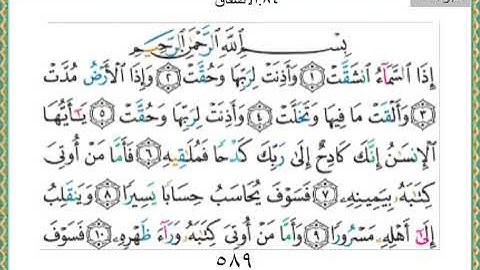 ٨٤.الانشقاق
بِسْمِ اللَّهِ الرَّحْمَٰنِ الرَّحِيمِ
إِذَا السَّمَآءُ انشَقَّتْ ١ وَأَذِنَتْ لِرَبِّهَا وَحُقَّتْ ٢ وَإِذَا الْأَرْضُ مُدَّتْ
٣ وَأَلْقَتْ مَا فِيهَا وَتَخَلَّتْ ٤ وَأَذِنَتْ لِرَبِّهَا وَحُقَّتْ ٥ يَٰٓأَيُّهَا
الْإِنسَٰنُ إِنَّكَ كَادِحٌ إِلَىٰ رَبِّكَ كَدْحًا فَمُلَٰقِيهِ ٦ فَأَمَّا مَنْ أُوتِىَ
كِتَٰبَهُۥ بِيَمِينِهِۦ ٧ فَسَوْفَ يُحَاسَبُ حِسَابًا يَسِيرًا ٨ وَيَنقَلِبُ
إِلَىٰٓ أَهْلِهِۦ مَسْرُورًا ٩ وَأَمَّا مَنْ أُوتِىَ كِتَٰبَهُۥ وَرَآءَ ظَهْرِهِۦ ١٠ فَسَوْفَ
٥٨٩